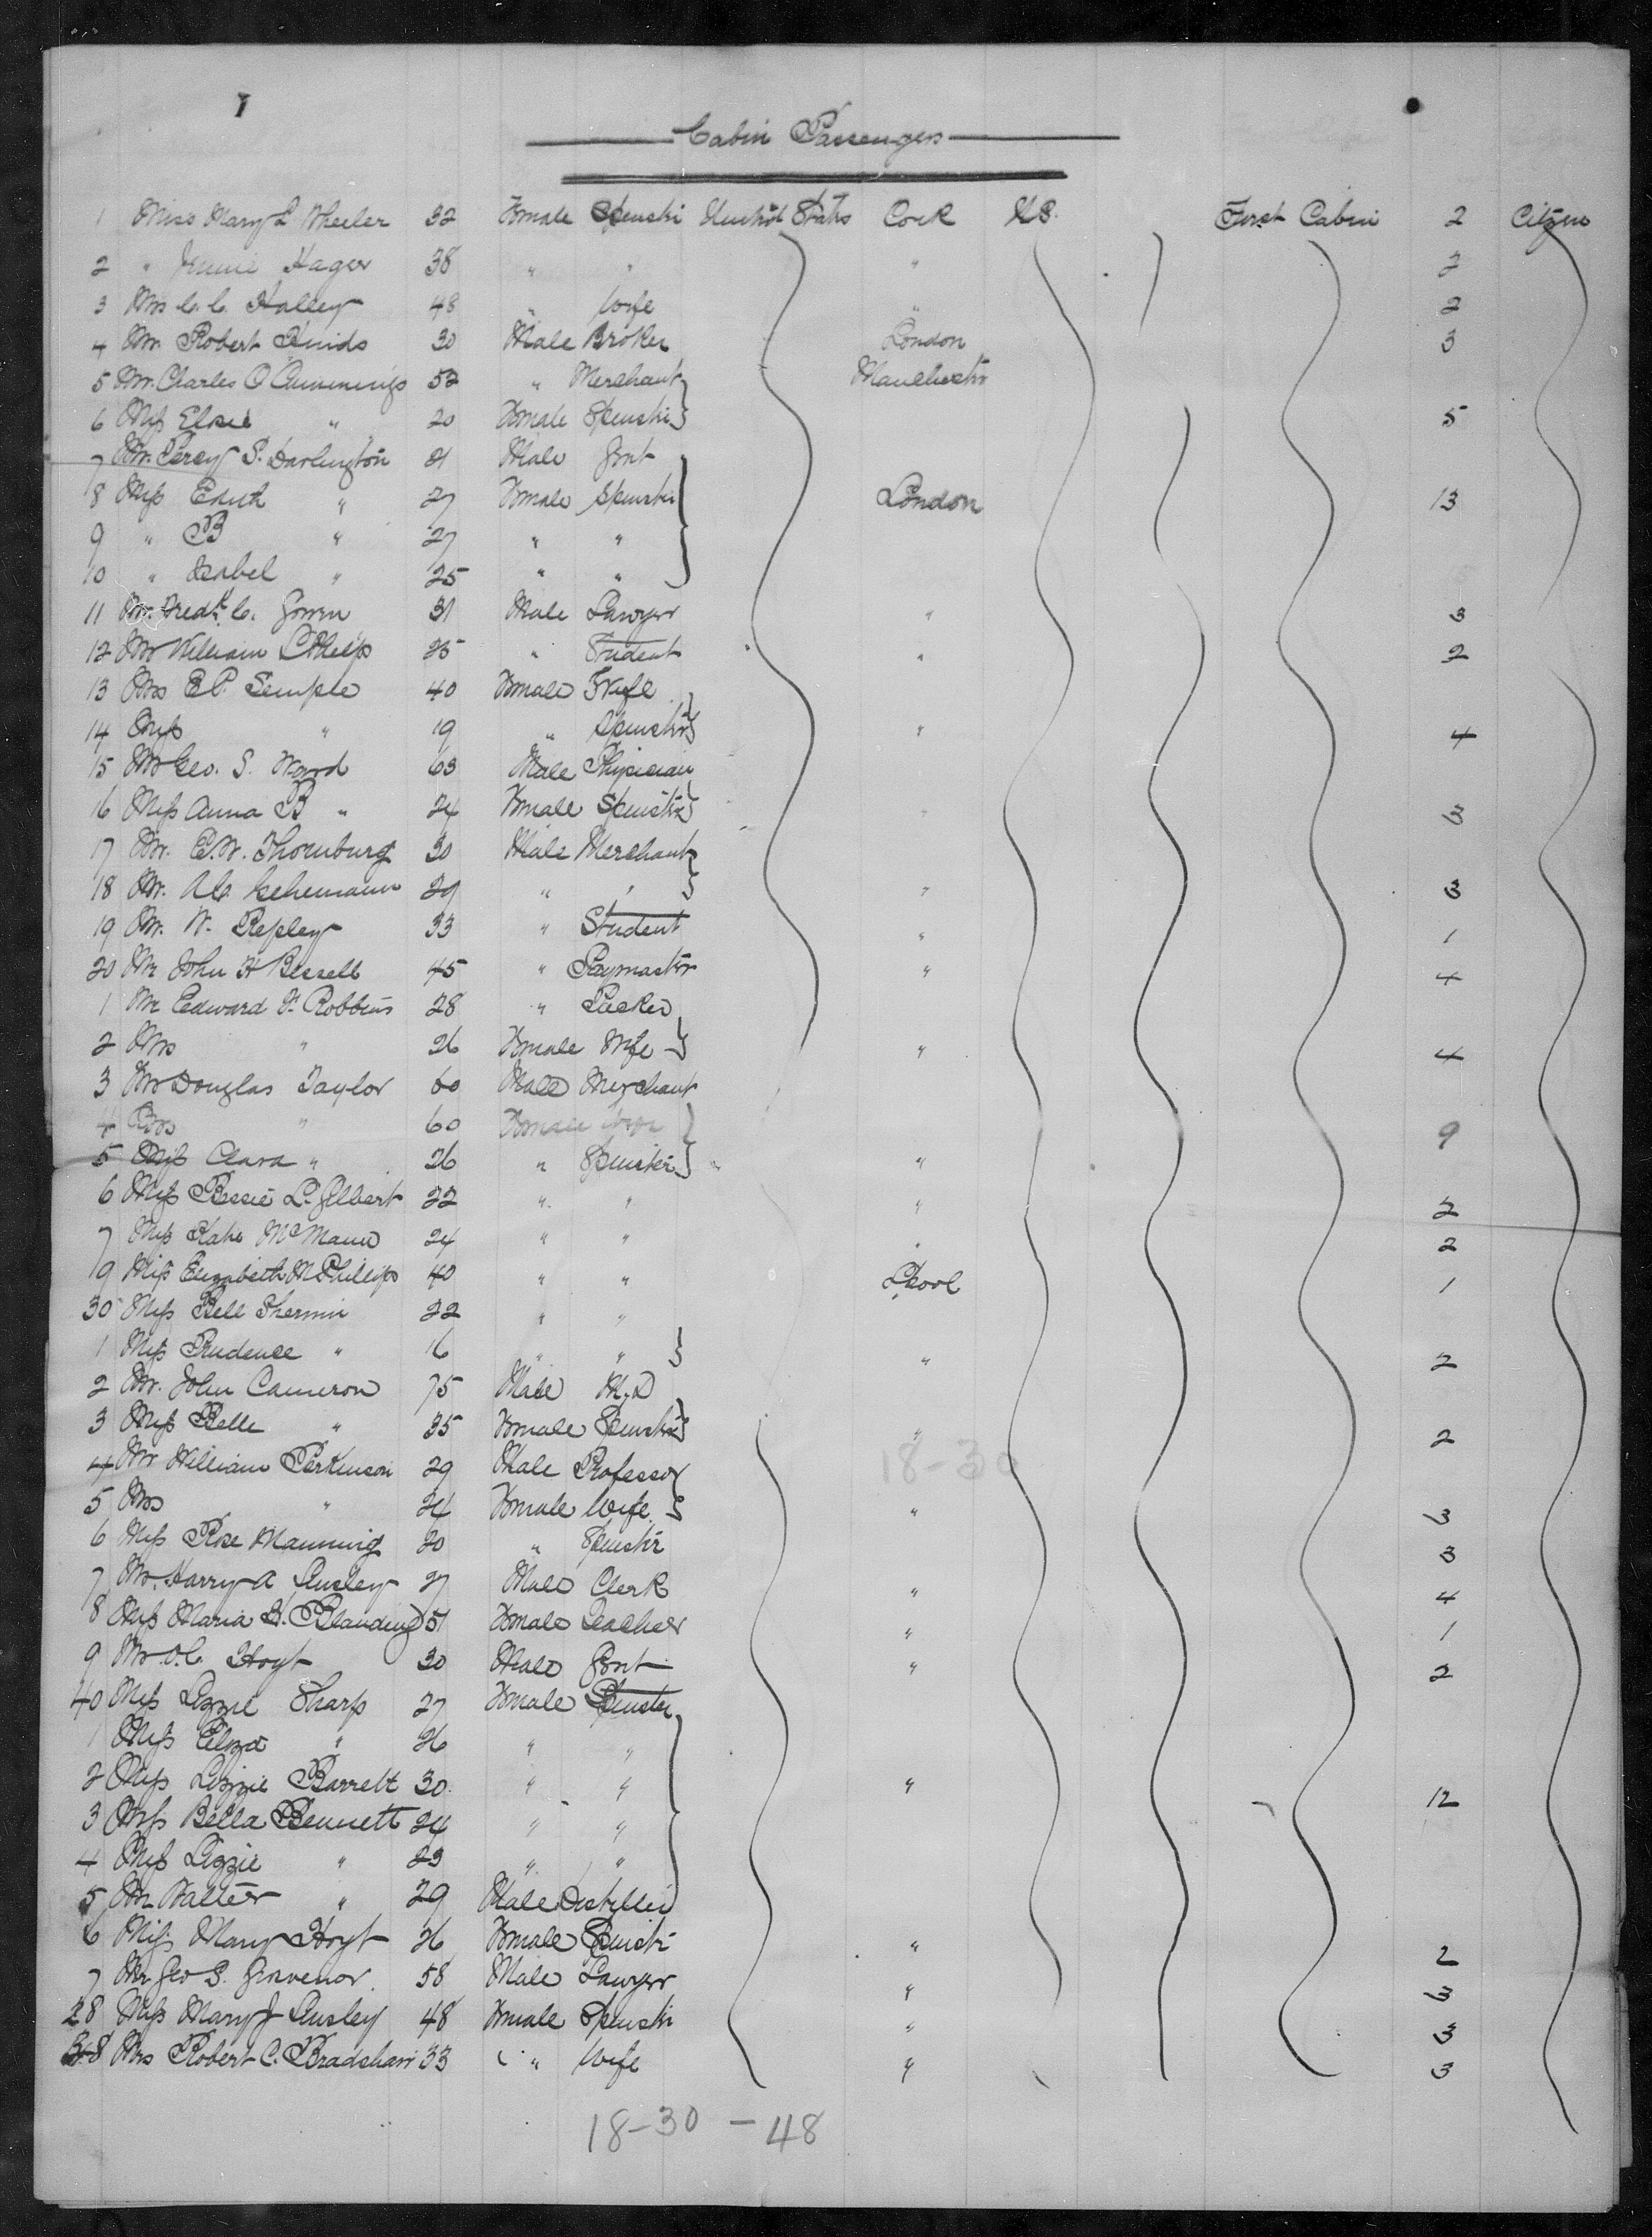 Cabin Passengers
1 Miss Mary L Wheeler 32 Female Spinster United States Cork U.S. First Cabin 2 Citizen
2 " Jennie Hager 38 " " " 2
3 Mrs C. C. Halley 48 " Wife " 2
4 Mr. Robert Hinds 30 Male Broker London 3
5 Mr. Charles O Cummings 52 " Merchant Manchester
6 Miss Elsie " 20 Female Spinster 5
7 Mr. Percy S. Darlington 21 Male Gent
8 Miss Edith " 27 Female Spinster London 13
9 " B " 27 " "
10 " Isabel " 25 " "
11 Mr. Fredk. C. Gowen 31 Male Lawyer " 3
12 Mr William Phelps 25 " Student " 2
13 Mrs E P. Semple 40 Female Wife
14 Miss " 19 " Spinster " 4
15 Mr Geo. S. Ward 63 Male Physician
16 Miss Anna B " 24 Female Spinster " 3
17 Mr. E. W. Thornburg 30 Male Merchant
18 Mr. A C. 29 " " " 3
19 Mr. W. Repley 33 " Student " 1
20 Mr John H Bissell 45 " Paymaster " 4
1 Mr Edward F. Robbins 28 "
2 Mrs " 26 Female Wife " 4
3 Mr Douglas Taylor 60 Male Merchant
4 Mrs " 60 Female Wife 9
5 Miss Clara " 26 " Spinster "
6 Miss Bessie L. Gilbert 22 " " " 2
7 Miss Kate McMann 24 " " " 2
9 Miss Elizabeth M Phillips 40 " " Lpool 1
30 Miss Bell Shermin 22 " "
1 Miss Prudence " 16 " " " 2
2 Mr. John Cameron 75 Male M.D
3 Miss Belle " 35 Female Spinster " 2
18-30
4 Mr William Perkinson 29 Male Professor
5 Mrs " 24 Female Wife " 3
6 Miss Rose Manning 20 " Spinster 3
7 Mr. Harry A Ansley 27 Male Clerk " 4
8 Miss Maria H. Blanding 51 Female Teacher " 1
9 Mr O. C. Hoyt 30 Male Gent " 2
40 Miss Lizzie Sharp 27 Female Spinster
1 Miss Eliza " 26 " "
2 Miss Lizzie Barrett 30 " " " 12
3 Miss Bella Bennett 24 " "
4 Miss Lizzie " 23 " "
5 Mr Walter " 29 Male Distiller
6 Miss Mary Hoyt 26 Female Spinster " 2
7 Mr Geo S. Grosvenor 58 Male Lawyer " 3
28 Miss Mary J Ansley 48 Female Spinster " 3
8 Mrs Robert C. Bradshaw 33 " Wife " 3
18-30 - 48